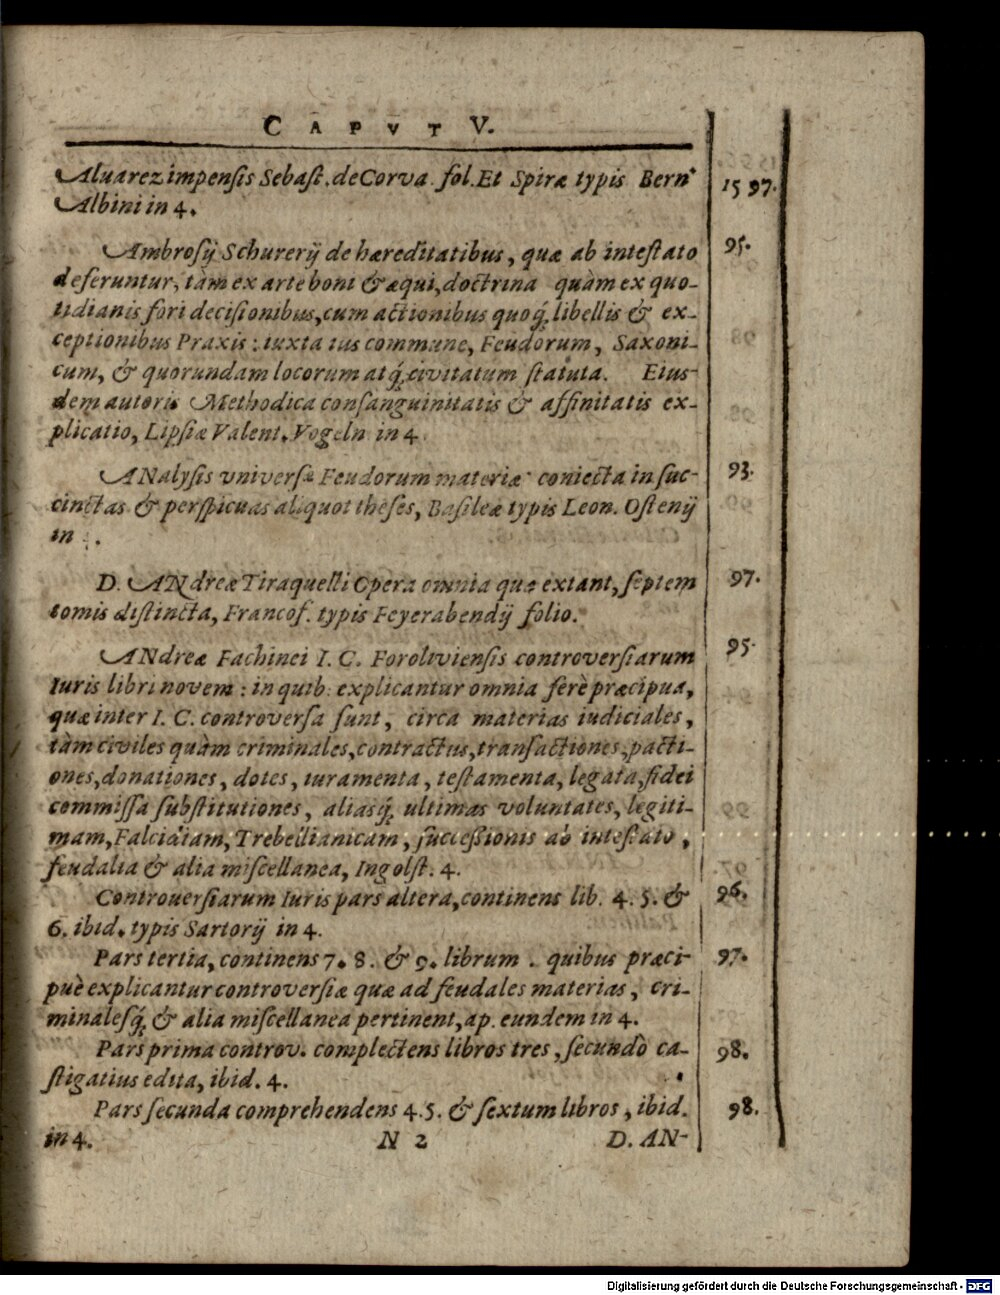 CAPVT V.
Aluarez impensis Sebast. de Corva. fol. Et Spiræ typis Bern. 1597.
Albini in 4.
Ambrosij Schurerij de hæreditatibus, quæ ab intestato 95.
deferuntur, tàm ex arte boni & æqui, doctrina quàm ex quo-
tidianis fori decisionibus, cum actionibus quoq́; libellis & ex-
ceptionibus Praxis: iuxta ius commune, Feudorum, Saxoni-
cum, & quorundam locorum atq́; civitatum statuta. Eius-
dem autoris Methodica consanguinitatis & affinitatis ex-
plicatio, Lipsiæ Valent. Vogeln in 4.
ANalysis vniversæ Feudorum materiæ coniecta in suc- 93.
cinctas & perspicuas aliquot theses, Basileæ typis Leon. Ostenij
in .
D. ANdreæ Tiraquelli Opera omnia quæ extant, septem 97.
tomis distincta, Francof. typis Feyerabendij folio.
ANdreæ Fachinei I. C. Foroliviensis controversiarum 95.
Iuris libri novem: in quib. explicantur omnia ferè præcipua,
quæ inter I. C. controversa sunt, circa materias iudiciales,
tàm civiles quàm criminales, contractus, transactiones, pacti-
ones, donationes, dotes, iuramenta, testamenta, legata, fidei
commissa substitutiones, aliasq́; ultimas voluntates, legiti-
mam, Falcidiam, Trebellianicam, successionis ab intestato,
feudalia & alia miscellanea, Ingolst. 4.
Controuersiarum Iuris pars altera, continens lib. 4. 5. & 96.
6. ibid. typis Sartorij in 4.
Pars tertia, continens 7. 8. & 9. librum. quibus præci- 97.
puè explicantur controversiæ quæ ad feudales materias, cri-
minalesq́; & alia miscellanea pertinent, ap. eundem in 4.
Pars prima controv. complectens libros tres, secundò ca- 98.
stigatius edita, ibid. 4.
Pars secunda comprehendens 4. 5. & sextum libros, ibid. 98.
in 4. N 2 D. AN-
Digitalisierung gefördert durch die Deutsche Forschungsgemeinschaft - DFG